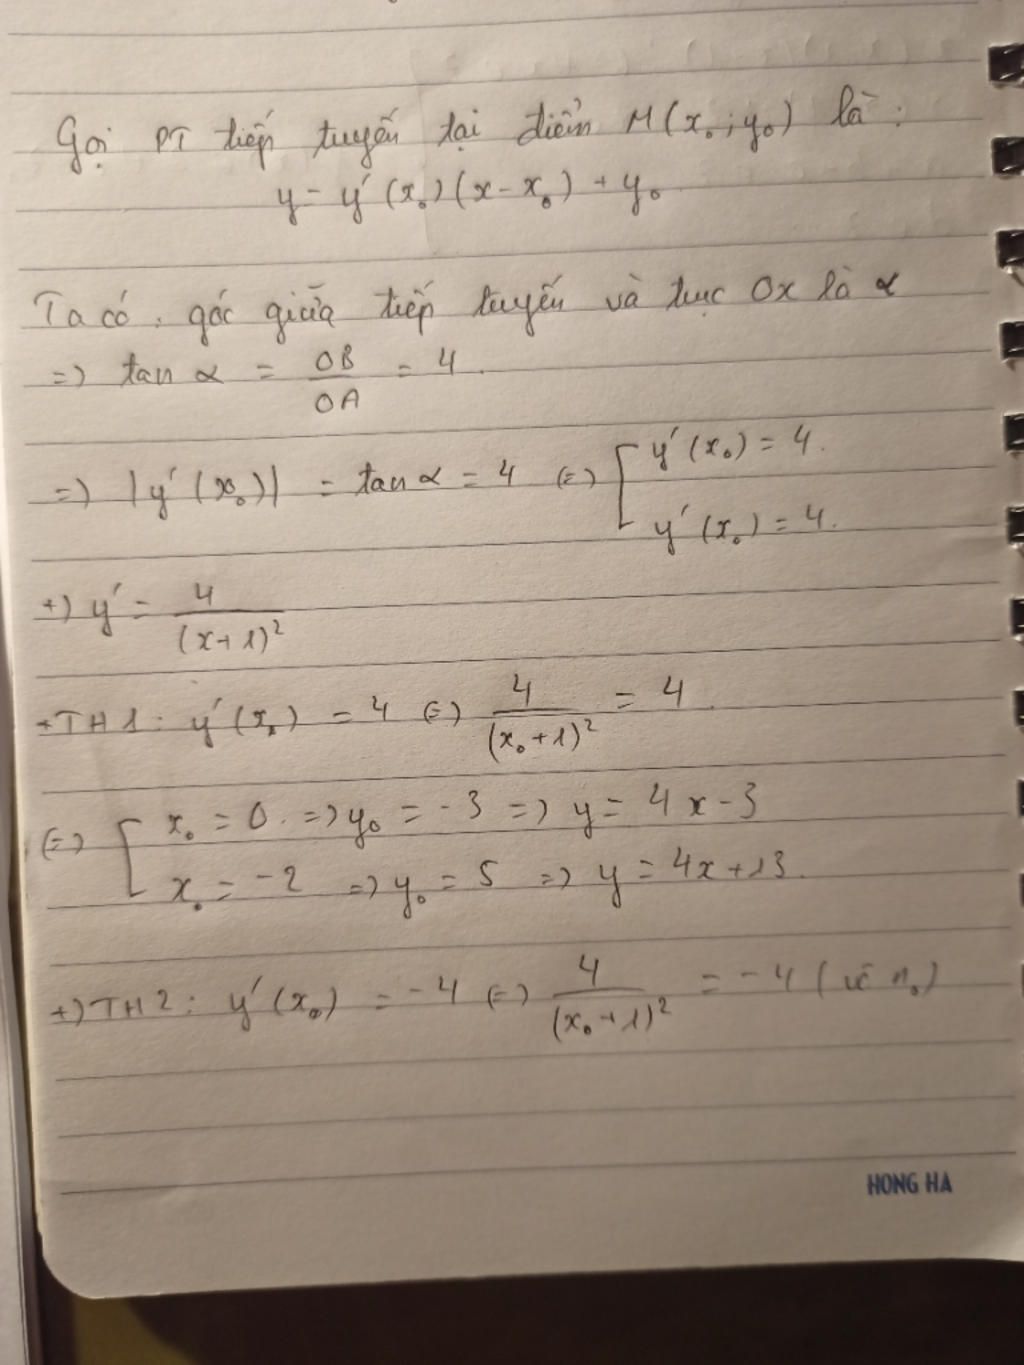 Gọi PT tiếp tuyến tại điểm M(x₀;y₀) là:
y = y'(x₀)(x - x₀) + y₀
Ta có, góc giữa tiếp tuyến và trục Ox là α
=> tan α = OB/OA = 4.
=> |y'(x₀)| = tan α = 4 (=) [ y'(x₀) = 4.
y'(x₀) = 4.
+) y' = 4/(x+1)²
+TH1: y'(x₀) = 4 (=) 4/(x₀+1)² = 4.
(=) [ x₀ = 0. => y₀ = -3 => y = 4x - 3
x₀ = -2 => y₀ = 5 => y = 4x + 13.
+) TH2: y'(x₀) = -4 (=) 4/(x₀+1)² = -4 (vô n₀)
HONG HA